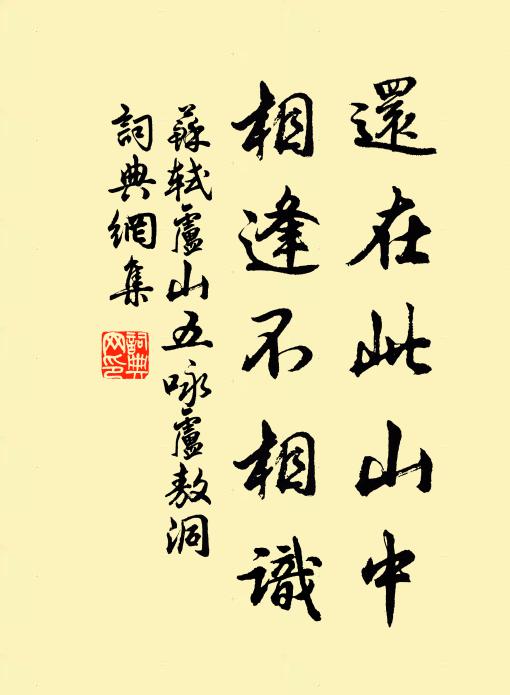 還在此山中
相逢不相識
蘇軾廬山五咏廬敖洞
詞典網集
詞典
网印